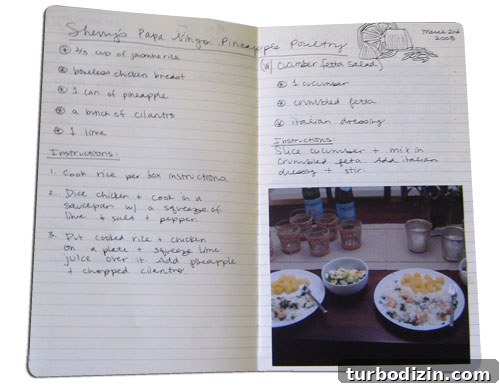 Sherry's Papa Ningo Pineapple Poultry
⅔ cup of jasmine rice
boneless chicken breast
1 can of pineapple
a bunch of cilantro
1 lime
Instructions:
1. Cook rice per box instructions.
2. Dice chicken + cook in a
saucepan w/ a squeeze of
lime + salt + pepper.
3. Put cooked rice + chicken
on a plate + squeeze lime
juice over it. Add pineapple
+ chopped cilantro.
March 2nd
2008
(w/ cucumber fetta salad)
1 cucumber
crumbled fetta
italian dressing
Instructions:
Slice cucumber + mix in
crumbled feta. Add italian
dressing + stir.
turbodizin.com